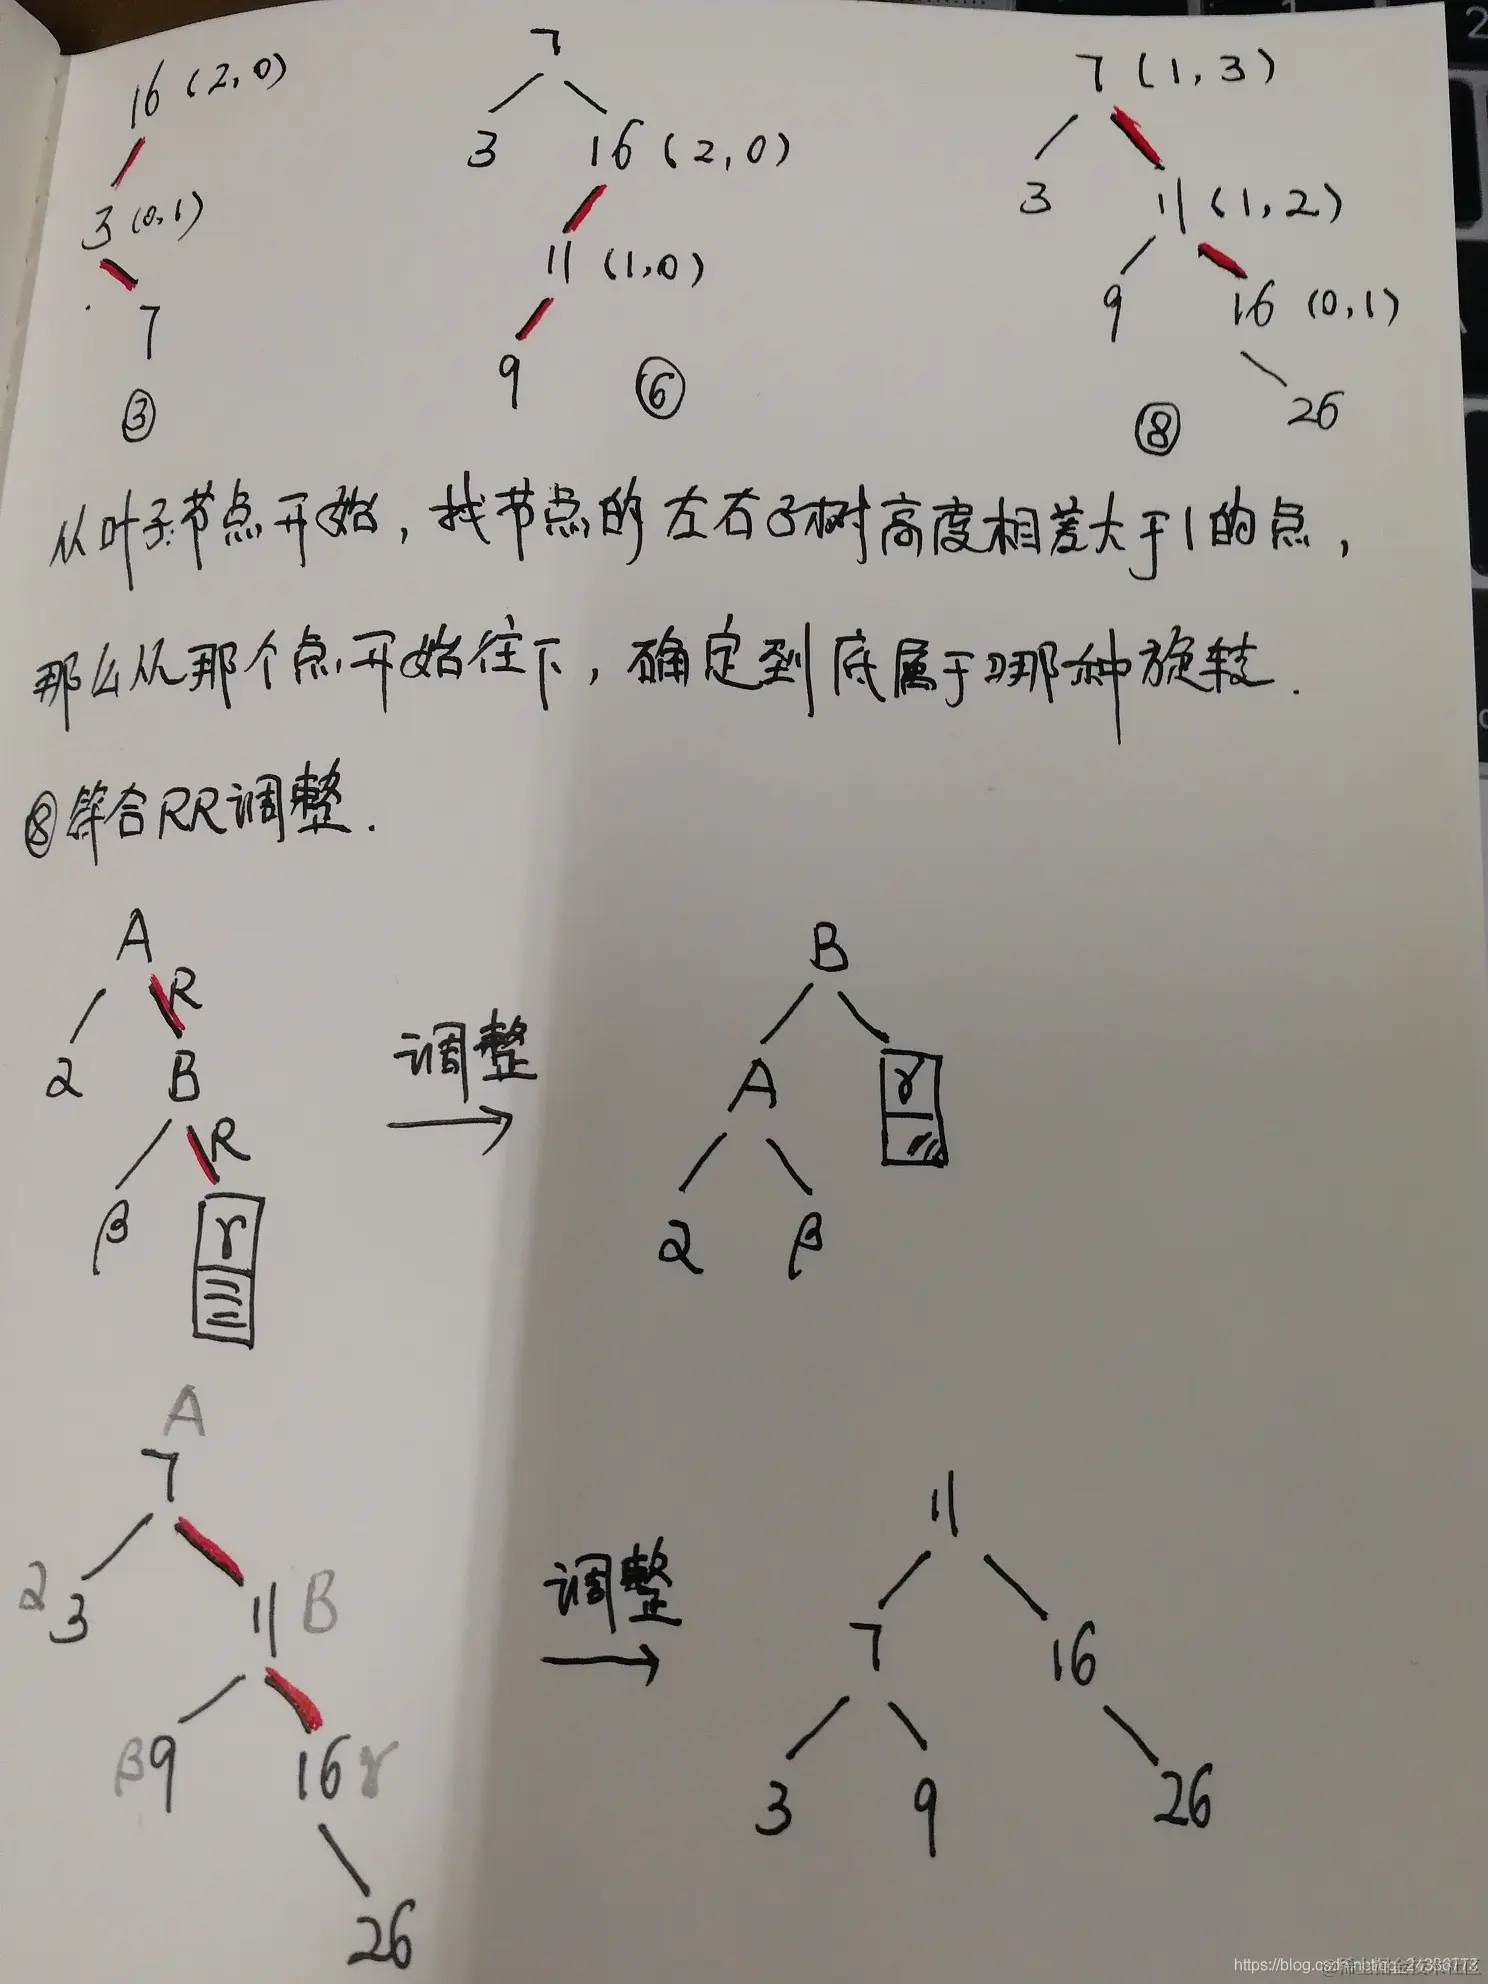 7
16 (2,0)
7 (1,3)
3
16 (2,0)
3 (0,1)
3
11 (1,2)
11 (1,0)
7
9
16 (0,1)
9
③
⑥
⑧
26
从叶子节点开始,找节点的左右子树高度相差大于1的点,
那么从那个点开始往下,确定到底属于哪种旋转.
⑧符合RR调整.
A
R
B
调整
2
B
A
γ
R
β
γ
2
β
A
7
11
2
3
11
B
调整
7
16
β
9
16
γ
3
9
26
26